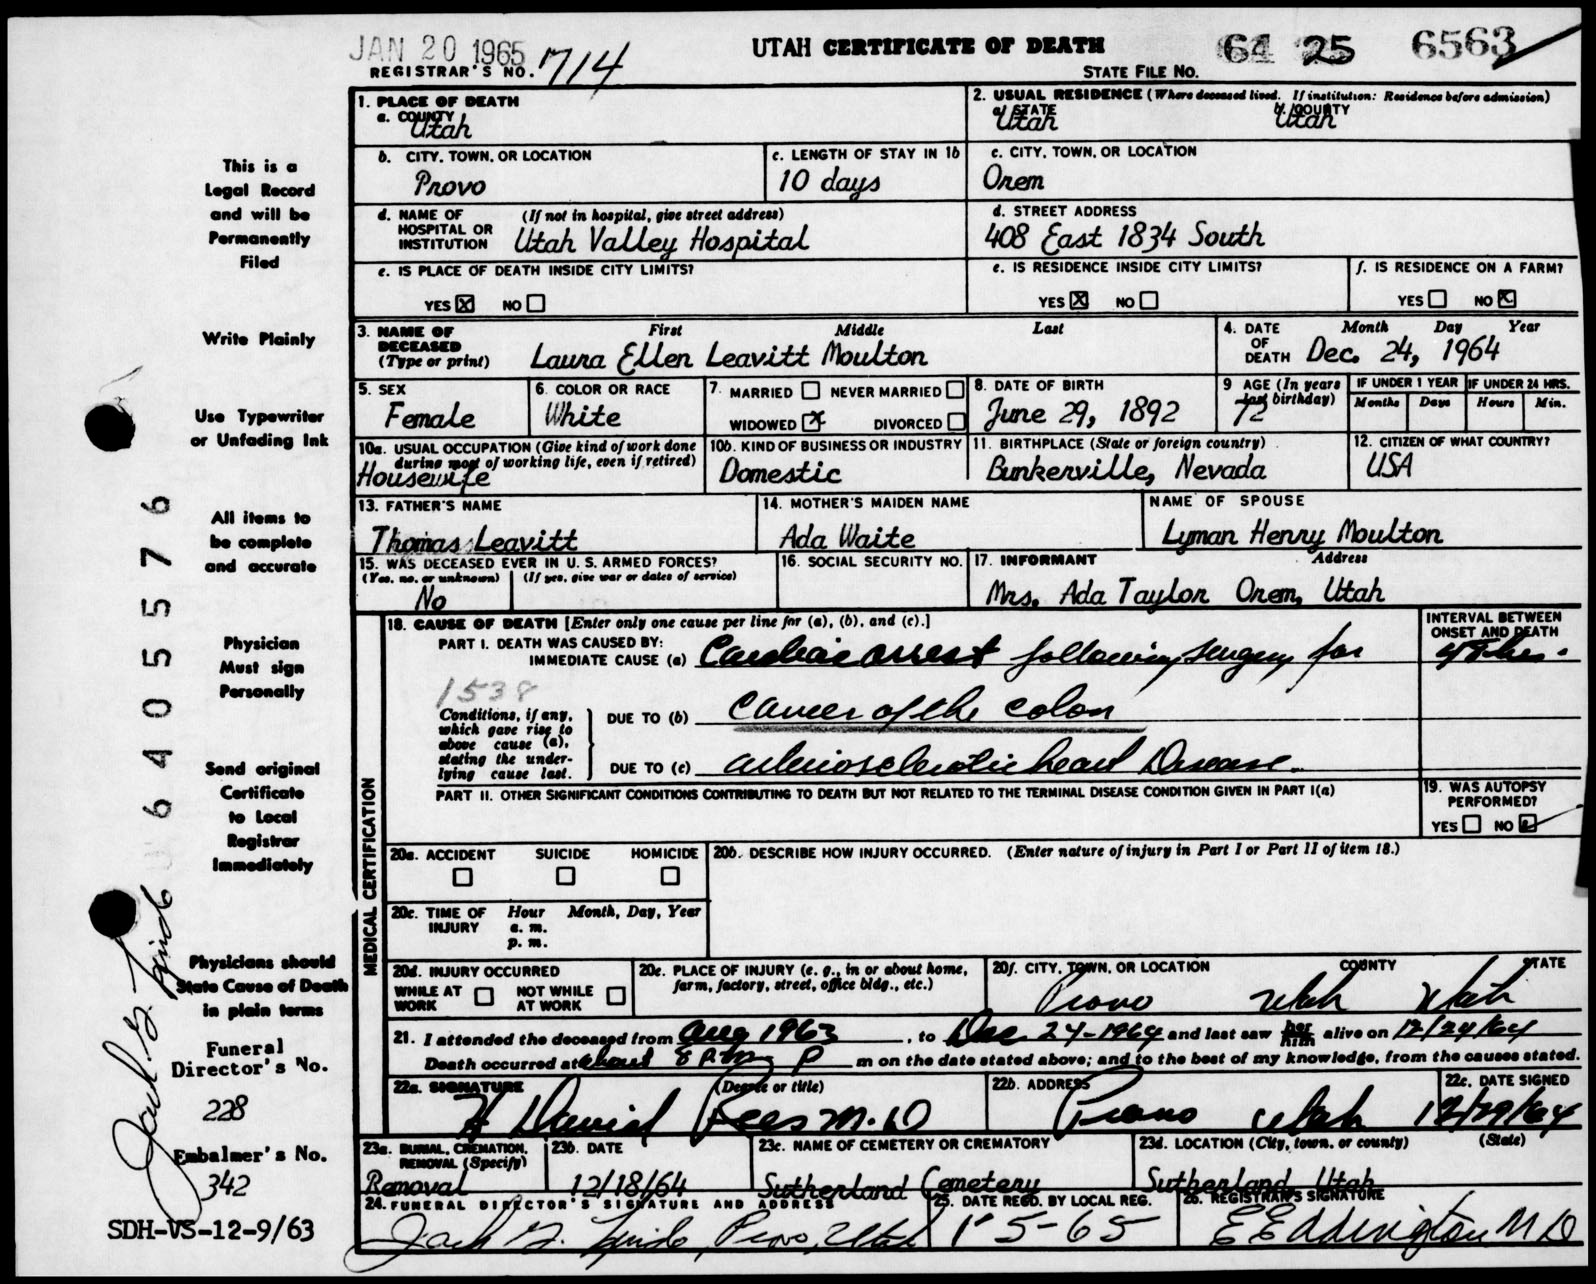 JAN 20 1965
REGISTRAR'S NO. 714
UTAH CERTIFICATE OF DEATH
STATE FILE NO. 64 25 6563
This is a
Legal Record
and will be
Permanently
Filed
Write Plainly
Use Typewriter
or Unfading Ink
All items to
be complete
and accurate
Physician
Must sign
Personally
Send original
Certificate
to Local
Registrar
Immediately
Physicians should
State Cause of Death
in plain terms
Funeral
Director's No.
228
Embalmer's No.
342
SDH-VS-12-9/63
640 5576
1. PLACE OF DEATH
a. COUNTY
Utah
2. USUAL RESIDENCE (Where deceased lived. If institution: Residence before admission)
a. STATE b. COUNTY
Utah Utah
b. CITY, TOWN, OR LOCATION
Provo
c. LENGTH OF STAY IN 1b
10 days
c. CITY, TOWN, OR LOCATION
Orem
d. NAME OF HOSPITAL OR INSTITUTION (If not in hospital, give street address)
Utah Valley Hospital
d. STREET ADDRESS
408 East 1834 South
e. IS PLACE OF DEATH INSIDE CITY LIMITS?
YES X NO
e. IS RESIDENCE INSIDE CITY LIMITS?
YES X NO
f. IS RESIDENCE ON A FARM?
YES NO X
3. NAME OF DECEASED (Type or print) First Middle Last
Laura Ellen Leavitt Moulton
4. DATE OF DEATH Month Day Year
Dec. 24, 1964
5. SEX
Female
6. COLOR OR RACE
White
7. MARRIED NEVER MARRIED
WIDOWED X DIVORCED
8. DATE OF BIRTH
June 29, 1892
9 AGE (In years last birthday)
72
IF UNDER 1 YEAR IF UNDER 24 HRS.
Months Days Hours Min.
10a. USUAL OCCUPATION (Give kind of work done during most of working life, even if retired)
Housewife
10b. KIND OF BUSINESS OR INDUSTRY
Domestic
11. BIRTHPLACE (State or foreign country)
Bunkerville, Nevada
12. CITIZEN OF WHAT COUNTRY?
USA
13. FATHER'S NAME
Thomas Leavitt
14. MOTHER'S MAIDEN NAME
Ada Waite
NAME OF SPOUSE
Lyman Henry Moulton
15. WAS DECEASED EVER IN U. S. ARMED FORCES?
(Yes, no, or unknown) (If yes, give war or dates of service)
No
16. SOCIAL SECURITY NO.
17. INFORMANT Address
Mrs. Ada Taylor Orem, Utah
MEDICAL CERTIFICATION
18. CAUSE OF DEATH [Enter only one cause per line for (a), (b), and (c).]
INTERVAL BETWEEN ONSET AND DEATH
PART I. DEATH WAS CAUSED BY:
IMMEDIATE CAUSE (a) Cardiac arrest following surgery for
1538
Conditions, if any, which gave rise to above cause (a), stating the underlying cause last.
DUE TO (b) cancer of the colon
DUE TO (c) arteriosclerotic heart Disease.
PART II. OTHER SIGNIFICANT CONDITIONS CONTRIBUTING TO DEATH BUT NOT RELATED TO THE TERMINAL DISEASE CONDITION GIVEN IN PART I(a)
19. WAS AUTOPSY PERFORMED?
YES NO
20a. ACCIDENT SUICIDE HOMICIDE
20b. DESCRIBE HOW INJURY OCCURRED. (Enter nature of injury in Part I or Part II of item 18.)
20c. TIME OF INJURY Hour Month, Day, Year
a. m.
p. m.
20d. INJURY OCCURRED
WHILE AT WORK NOT WHILE AT WORK
20e. PLACE OF INJURY (e. g., in or about home, farm, factory, street, office bldg., etc.)
20f. CITY, TOWN, OR LOCATION COUNTY STATE
Provo Utah Utah
21. I attended the deceased from Aug 1963, to Dec 24-1964 and last saw her him alive on 12/24/64
Death occurred at about 8 P.M. P m on the date stated above; and to the best of my knowledge, from the causes stated.
22a. SIGNATURE (Degree or title)
H David Rees M.D
22b. ADDRESS
Provo Utah
22c. DATE SIGNED
12/29/64
23a. BURIAL, CREMATION, REMOVAL (Specify)
Removal
23b. DATE
12/18/64
23c. NAME OF CEMETERY OR CREMATORY
Sutherland Cemetery
23d. LOCATION (City, town, or county) (State)
Sutherland Utah
24. FUNERAL DIRECTOR'S SIGNATURE AND ADDRESS
Provo, Utah
25. DATE RECD. BY LOCAL REG.
1-5-65
26. REGISTRAR'S SIGNATURE
E E Eddington M D